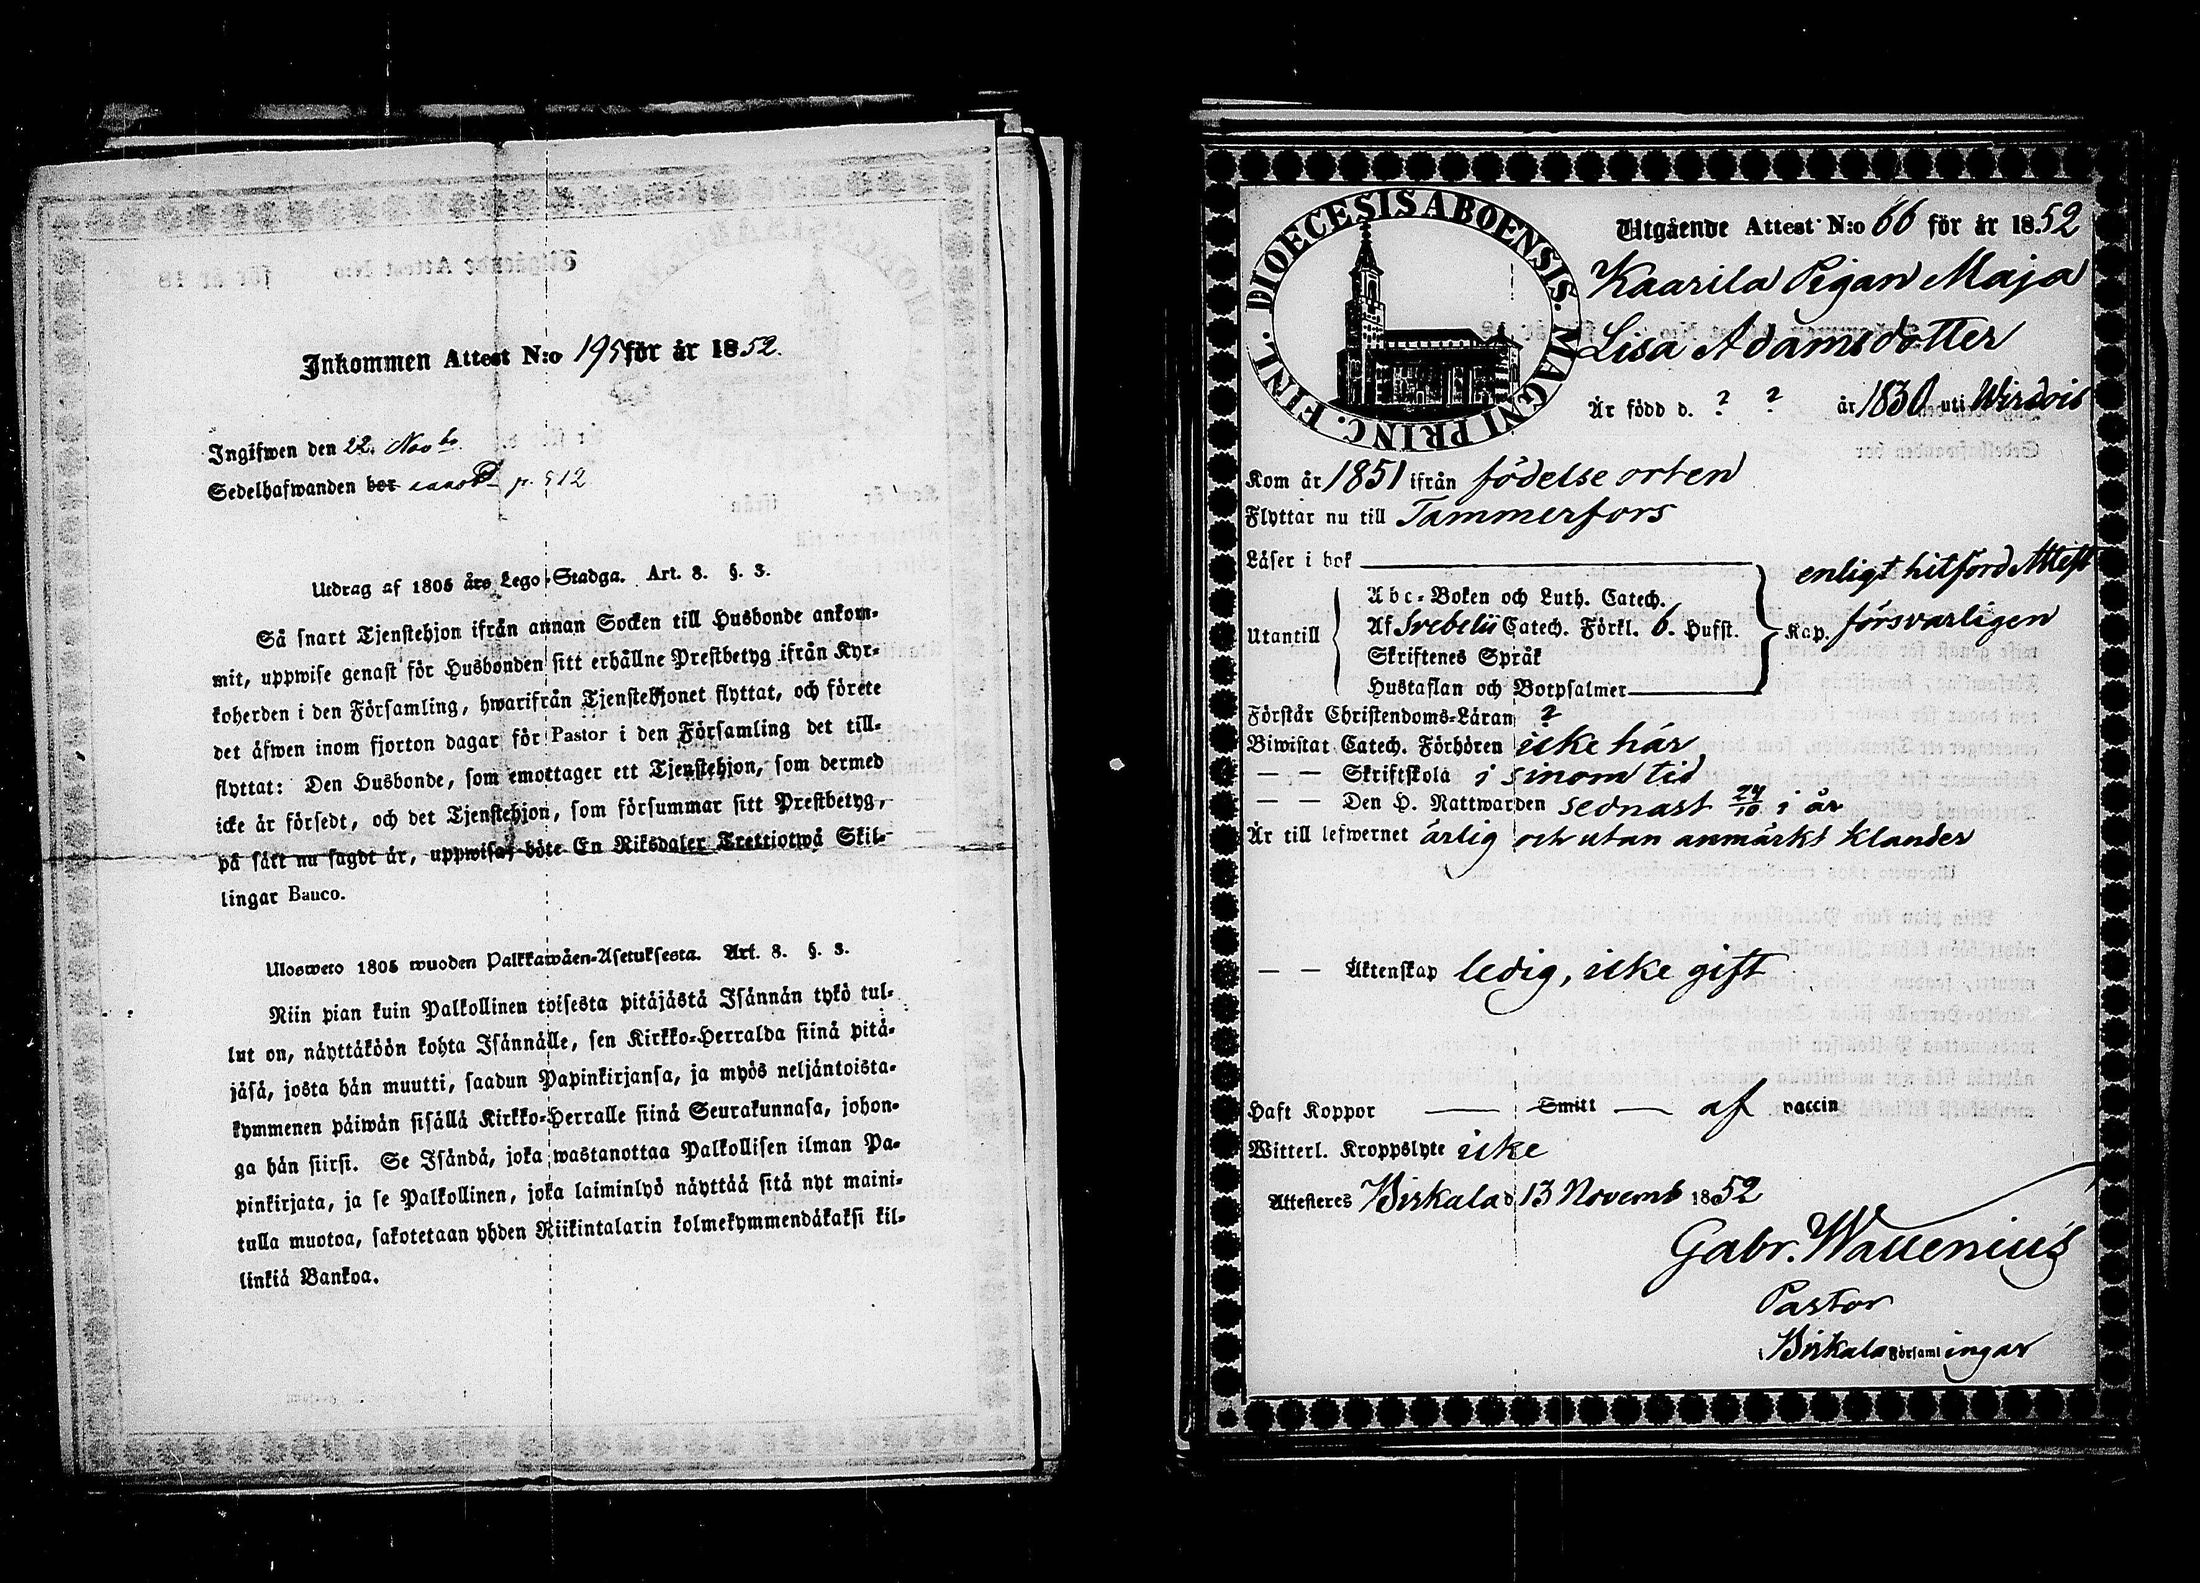 Inkommen Attest N:o 195 för år 1852.
Ingifwen den 22. Novb.
Sedelhafwanden bor p. 512
Utdrag af 1805 års Lego-Stadga. Art. 8. §. 3.
Så snart Tjenstehjon ifrån annan Socken till Husbonde ankom-
mit, uppwise genast för Husbonden sitt erhållne Prestbetyg ifrån Kyr-
koherden i den Församling, hwarifrån Tjenstehjonet flyttat, och förete
det äfwen inom fjorton dagar för Pastor i den Församling det till-
flyttat: Den Husbonde, som emottager ett Tjenstehjon, som dermed
icke är försedt, och det Tjenstehjon, som försummar sitt Prestbetyg,
på sätt nu sagdt är, uppwisa, böte En Riksdaler Trettiotwå Skil-
lingar Banco.
Ulosweto 1805 wuoden Palkkawäen-Asetuksesta. Art. 8. §. 3.
Niin pian kuin Palkollinen toisesta pitäjästä Isännän tykö tul-
lut on, näyttäköön kohta Isännälle, sen Kirkko-Herralda siinä pitä-
jäsä, josta hän muutti, saadun Papinkirjansa, ja myös neljäntoista-
kymmenen päiwän sisällä Kirkko-Herralle siinä Seurakunnasa, johon-
ga hän siirsi. Se Isändä, joka wastanottaa Palkollisen ilman Pa-
pinkirjata, ja se Palkollinen, joka laiminlyö näyttää sitä nyt maini-
tulla muotoa, sakotetaan yhden Riikintalarin kolmekymmendäkaksi kil-
linkiä Bankoa.
DIOECESIS ABOENSIS. MAGNI PRINC. FINL.
Utgående Attest N:o 66 för år 1852
Kaarila Pigan Maja
Lisa Adamsdotter
Är född d. ? ? år 1830 uti Wirdois
Kom år 1851 ifrån födelse orten
Flyttar nu till Tammerfors
Läser i bok
enligt hitförd Attest
Abc-Boken och Luth. Catech.
Utantill Af Svebelii Catech. Förkl. 6. Hufst. Kap. försvarligen
Skriftenes Språk
Hustaflan och Botpsalmer
Förstår Christendoms-Läran ?
Biwistat Catech. Förhören icke här
— — Skriftskola i sinom tid
— — Den H. Nattwarden sednast 24/10 i år
Är till lefwernet ärlig och utan anmärkt klander
— — Äktenskap ledig, icke gift
Haft Koppor — Smitt — af vaccin
Witterl. Kroppslyte icke
Attesteres Birkala d 13 Novemb 1852
Gabr. Wallenius
Pastor
i Birkala Församlingar